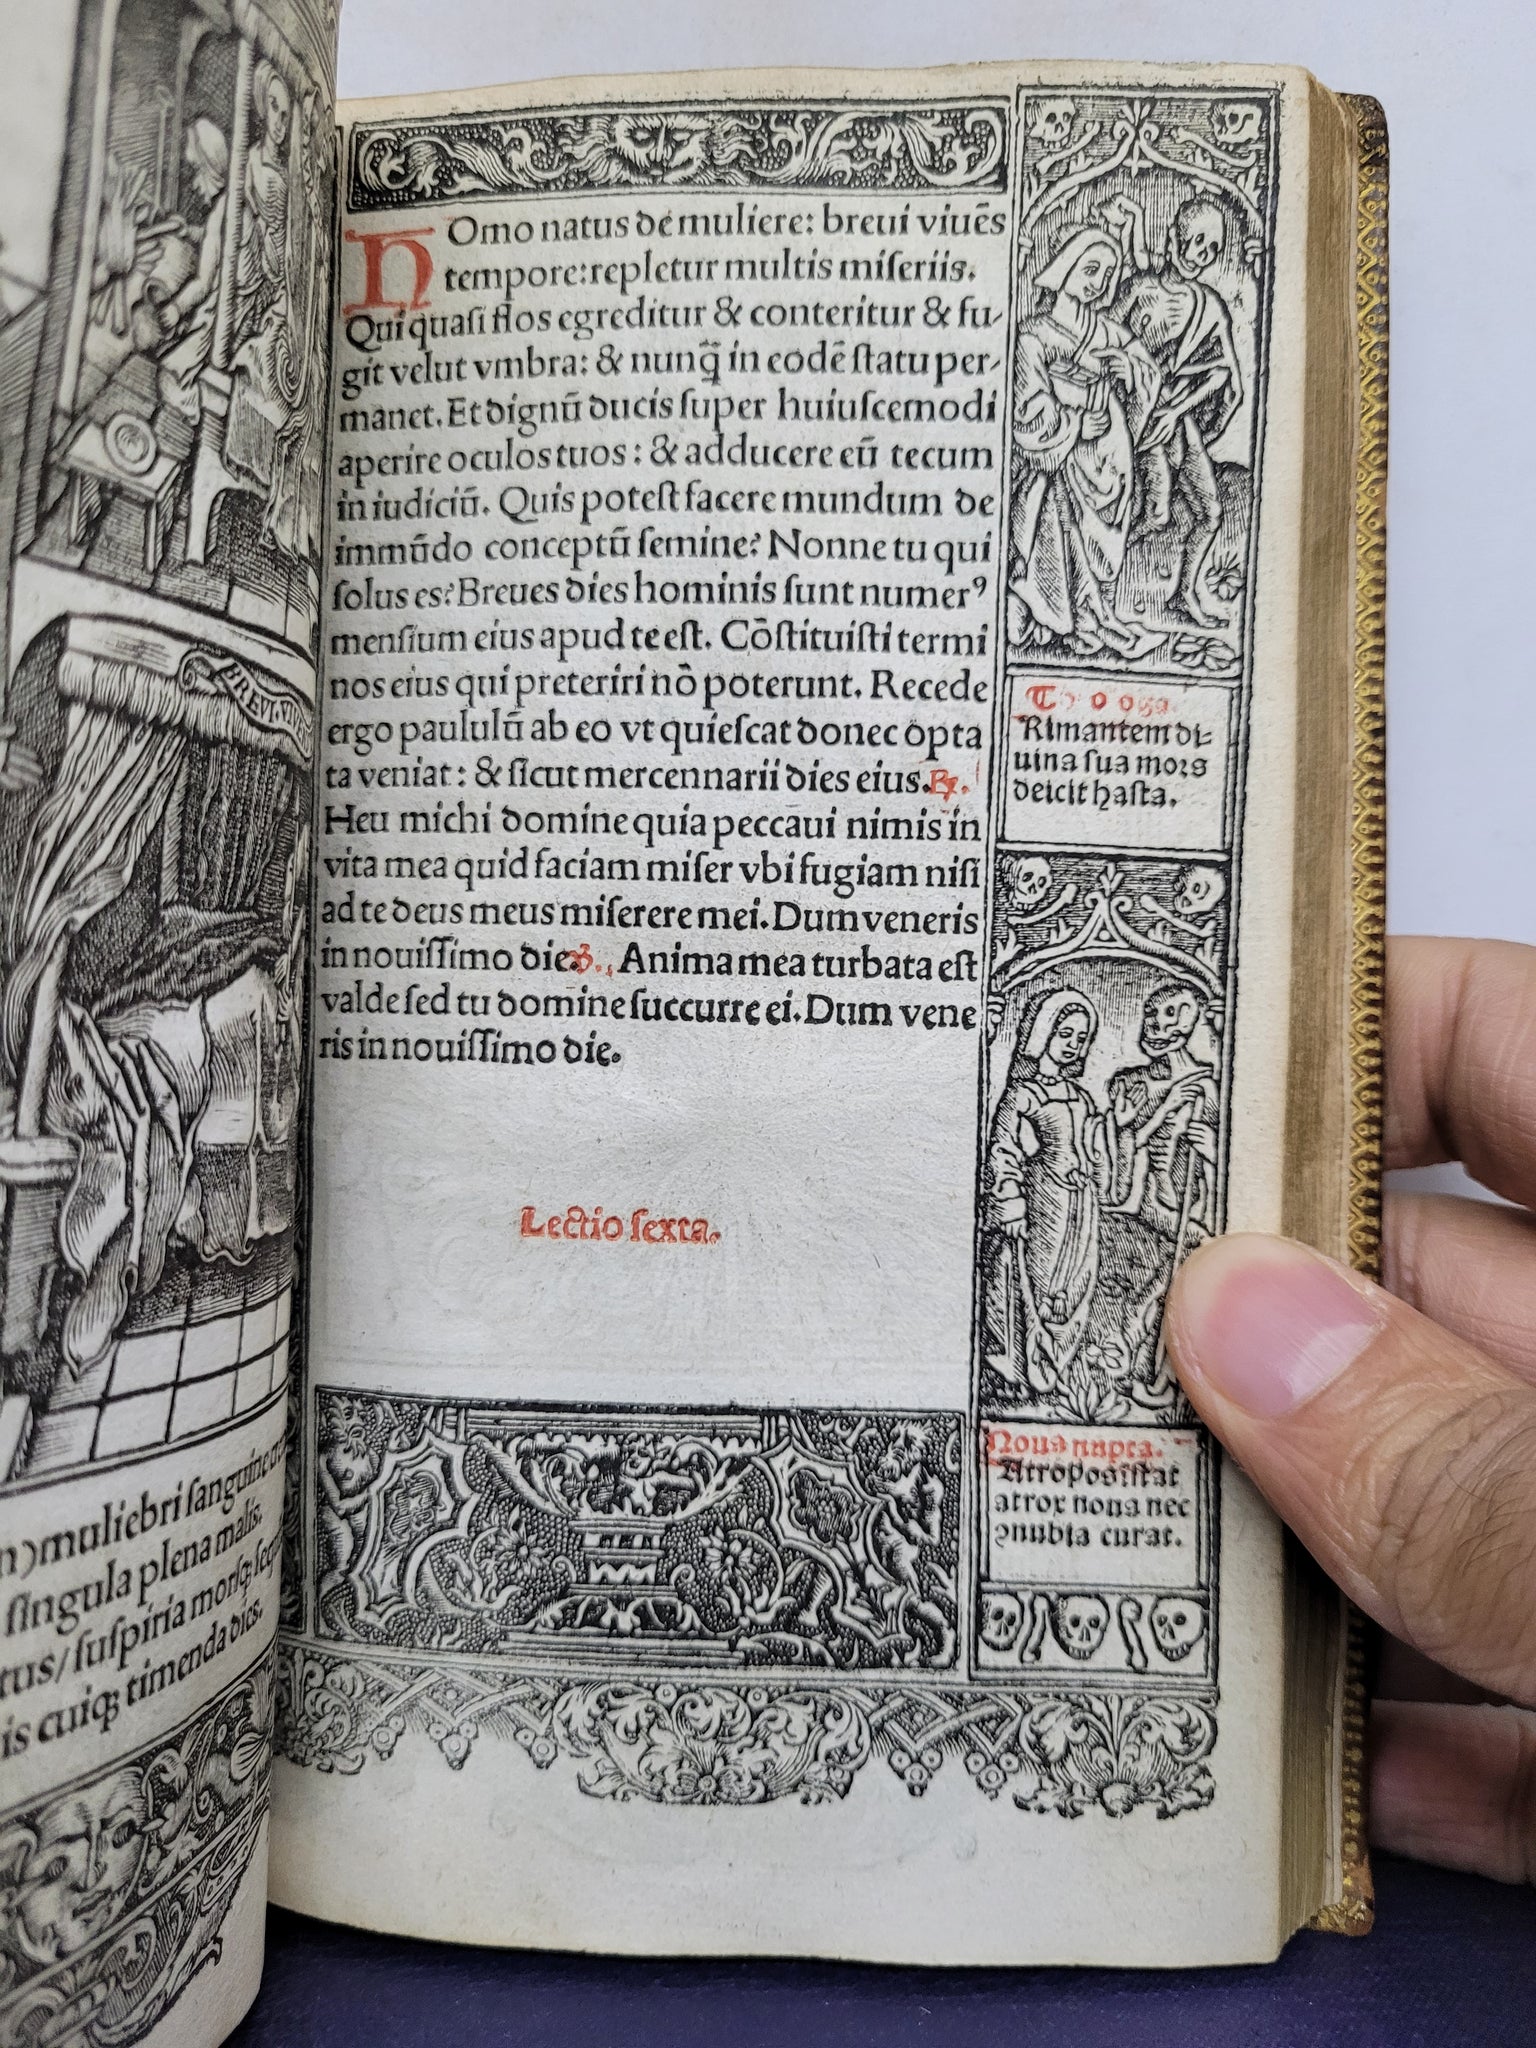 BREVI. VIVE
n) muliebri sanguine
singula plena malis.
tus/ suspiria morsq; sequ
is cuiq; timenda dies.
HOmo natus de muliere: breui viuēs
tempore: repletur multis miseriis.
Qui quasi flos egreditur & conteritur & fu-
git velut vmbra: & nunq̃ in eodē statu per-
manet. Et dignū ducis super huiuscemodi
aperire oculos tuos: & adducere eū tecum
in iudiciū. Quis potest facere mundum de
immūdo conceptū semine? Nonne tu qui
solus es? Breues dies hominis sunt numerꝰ
mensium eius apud te est. Cōstituisti termi
nos eius qui preteriri nō poterunt. Recede
ergo paululū ab eo vt quiescat donec opta
ta veniat: & sicut mercennarii dies eius. ℟.
Heu michi domine quia peccaui nimis in
vita mea quid faciam miser vbi fugiam nisi
ad te deus meus miserere mei. Dum veneris
in nouissimo die. ℣. Anima mea turbata est
valde sed tu domine succurre ei. Dum vene
ris in nouissimo die.
Lectio sexta.
Rimantem di-
uina sua mors
deicit hasta.
Noua nupta.
Atropos istat
atrox noua nec
ꝯnubia curat.